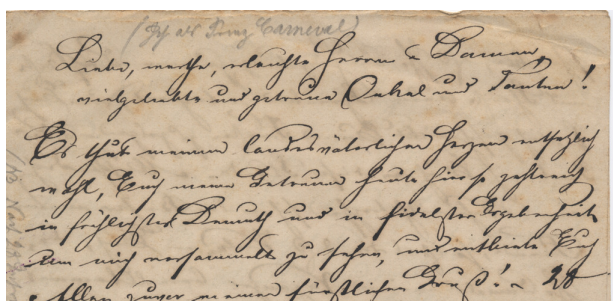 (Ich als Prinz Carneval)
Liebe, werthe, erlauchte Herrn u Damen,
vielgeliebte und getreue Onkel und Tanten!
Es thut meinem landesväterlichen Herzen entsetzlich
wohl, Euch meine Getreuen heute hier so zahlreich
in fröhlichster Demuth und in fidelster Ergebenheit
um mich versammelt zu sehen, und entbiete Euch
Allen zuvor meinen fürstlichen Gruß! 28